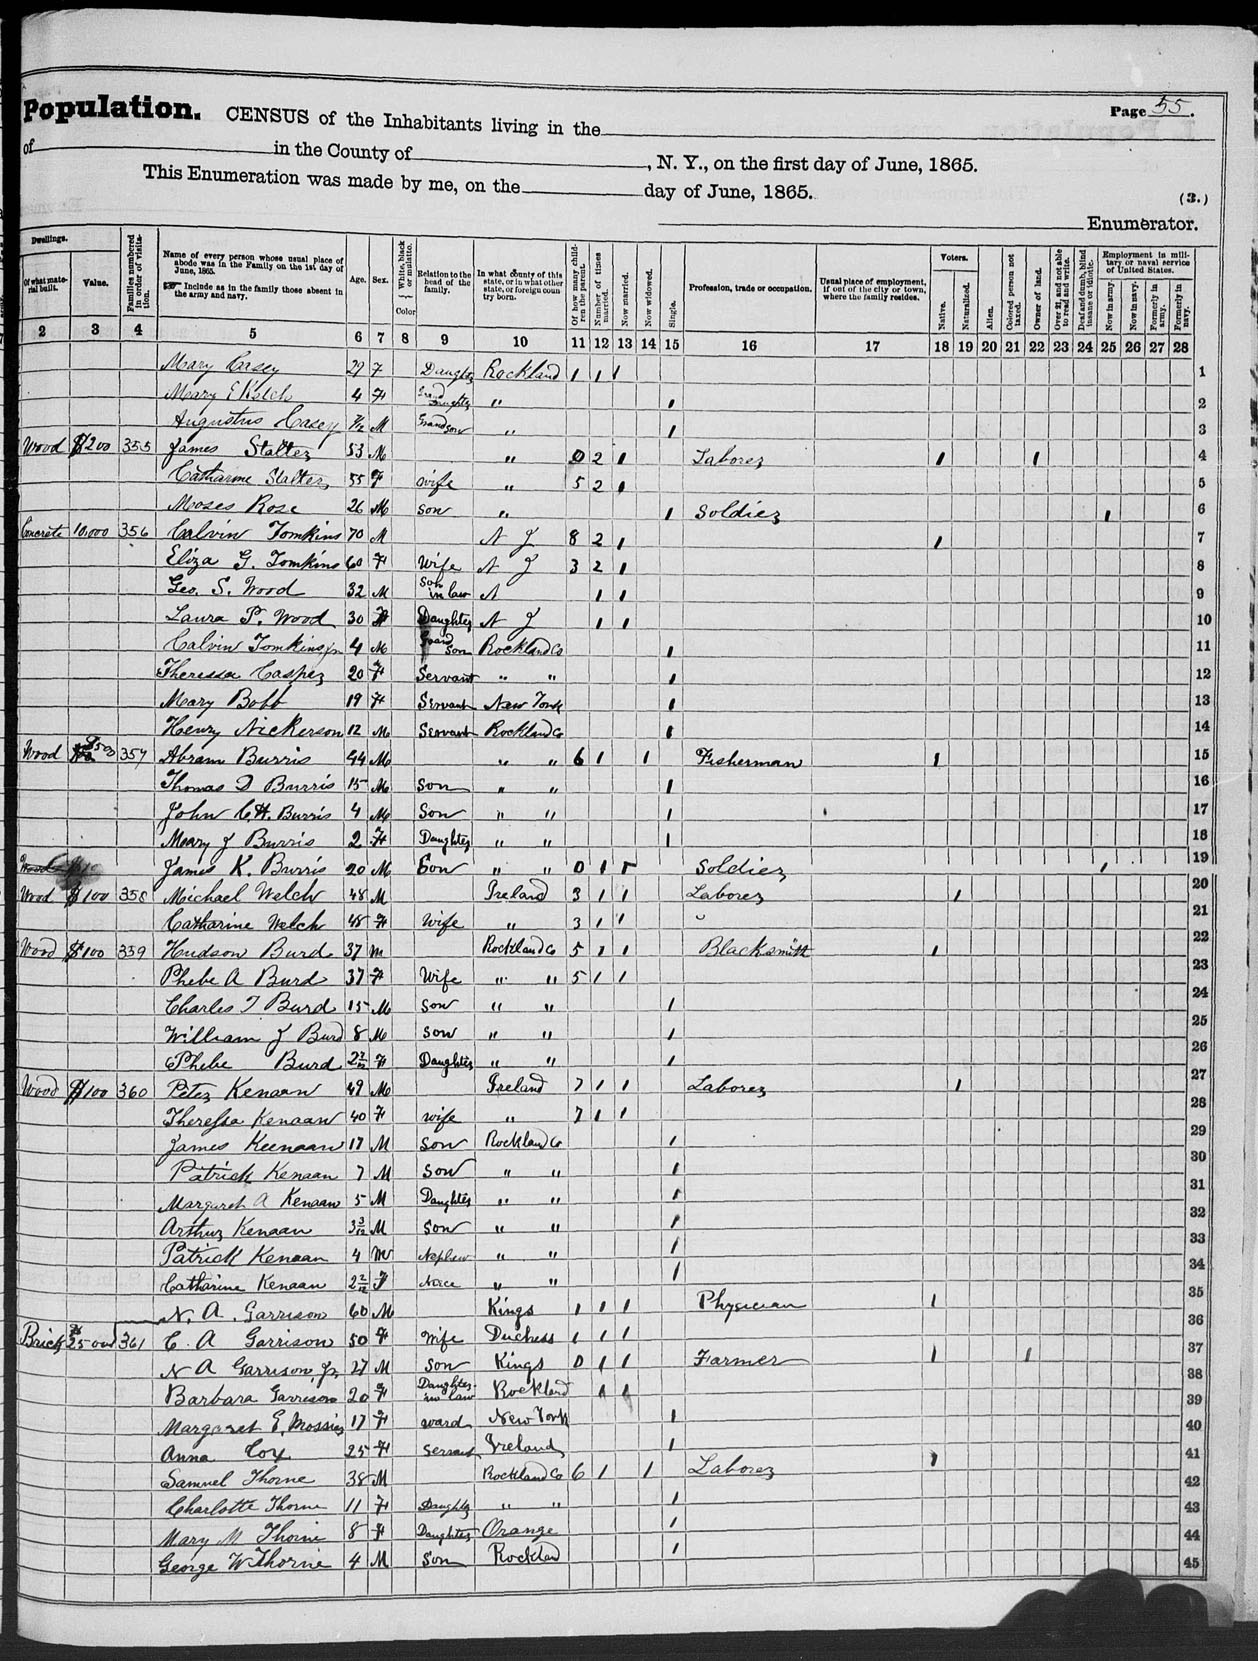 Population. CENSUS of the Inhabitants living in the Page 55.
of in the County of , N. Y., on the first day of June, 1865.
This Enumeration was made by me, on the day of June, 1865.
(3.)
Enumerator.
Dwellings. Of what material built. Value. Families numbered in order of visitation. Name of every person whose usual place of abode was in the Family on the 1st day of June, 1865. Include as in the family those absent in the army and navy. Age. Sex. White, black or mulatto. Color Relation to the head of the family. In what county of this state, or in what other state, or foreign country born. Of how many children the parent. Number of times married. Now married. Now widowed. Single. Profession, trade or occupation. Usual place of employment, if out of the city or town, where the family resides. Voters. Native. Naturalized. Alien. Colored person not taxed. Owner of land. Over 21, and not able to read and write. Deaf and dumb, blind insane or idiotic. Employment in military or naval service of United States. Now in army. Now in navy. Formerly in army. Formerly in navy.
2 3 4 5 6 7 8 9 10 11 12 13 14 15 16 17 18 19 20 21 22 23 24 25 26 27 28
Mary Casey 29 F Daughter Rockland 1 1 1 1
Mary E Welch 4 F Grand Daughter " 1 2
Augustus Casey 7/12 M Grandson " 1 3
Wood $200 355 James Stalter 53 M " 0 2 1 Laborer 1 1 4
Catharine Stalter 55 F wife " 5 2 1 5
Moses Rose 26 M son " 1 Soldier 1 6
Concrete 10,000 356 Calvin Tomkins 70 M N J 8 2 1 1 7
Eliza G. Tomkins 60 F Wife N J 3 2 1 8
Geo. S. Wood 32 M Son in law N 1 1 9
Laura P. Wood 30 F Daughter N J 1 1 10
Calvin Tomkins Jr 4 M Grand son Rockland Co 1 11
Theressa Casper 20 F Servant " " 1 12
Mary Bobb 19 F Servant New York 1 13
Henry Nickerson 12 M Servant Rockland Co 1 14
Wood 357 Abram Burris 44 M " " 6 1 1 Fisherman 1 15
Thomas D Burris 15 M Son " " 1 16
John C H. Burris 4 M Son " " 1 17
Mary J Burris 2 F Daughter " " 1 18
James K. Burris 20 M Son " " 0 1 1 Soldier 1 19
Wood $100 358 Michael Welch 48 M Ireland 3 1 1 Laborer 1 20
Catharine Welch 48 F Wife " 3 1 1 21
Wood $100 359 Hudson Burd 37 m Rockland Co 5 1 1 Blacksmith 1 22
Phebe A Burd 37 F Wife " " 5 1 1 23
Charles T Burd 15 M Son " " 1 24
William J Burd 8 M Son " " 1 25
Phebe Burd 2 F Daughter " " 1 26
Wood $100 360 Peter Kenaan 49 M Ireland 7 1 1 Laborer 1 27
Theressa Kenaan 40 F wife " 7 1 1 28
James Keenaan 17 M Son Rockland Co 1 29
Patrick Kenaan 7 M Son " " 1 30
Margaret A Kenaan 5 M Daughter " " 1 31
Arthur Kenaan 3 3/12 M Son " " 1 32
Patrick Kenaan 4 M Nephew " " 1 33
Catharine Kenaan 2 2/12 F Niece " " 1 34
N. A. Garrison 60 M Kings 1 1 1 Physician 1 35
Brick 361 C. A Garrison 50 F Wife Duchess 1 1 1 36
N A Garrison, Jr 27 M Son Kings 0 1 1 Farmer 1 1 37
Barbara Garrison 20 F Daughter in law Rockland 1 1 38
39
Margaret E. 17 F ward New York 1 40
Anna Cox 25 F Servant Ireland 1 41
Samuel Thorne 38 M Rockland Co 6 1 1 Laborer 1 42
Charlotte Thorne 11 F Daughter " " 1 43
Mary M Thorne 8 F Daughter Orange 1 44
George W Thorne 4 M Son Rockland 1 45